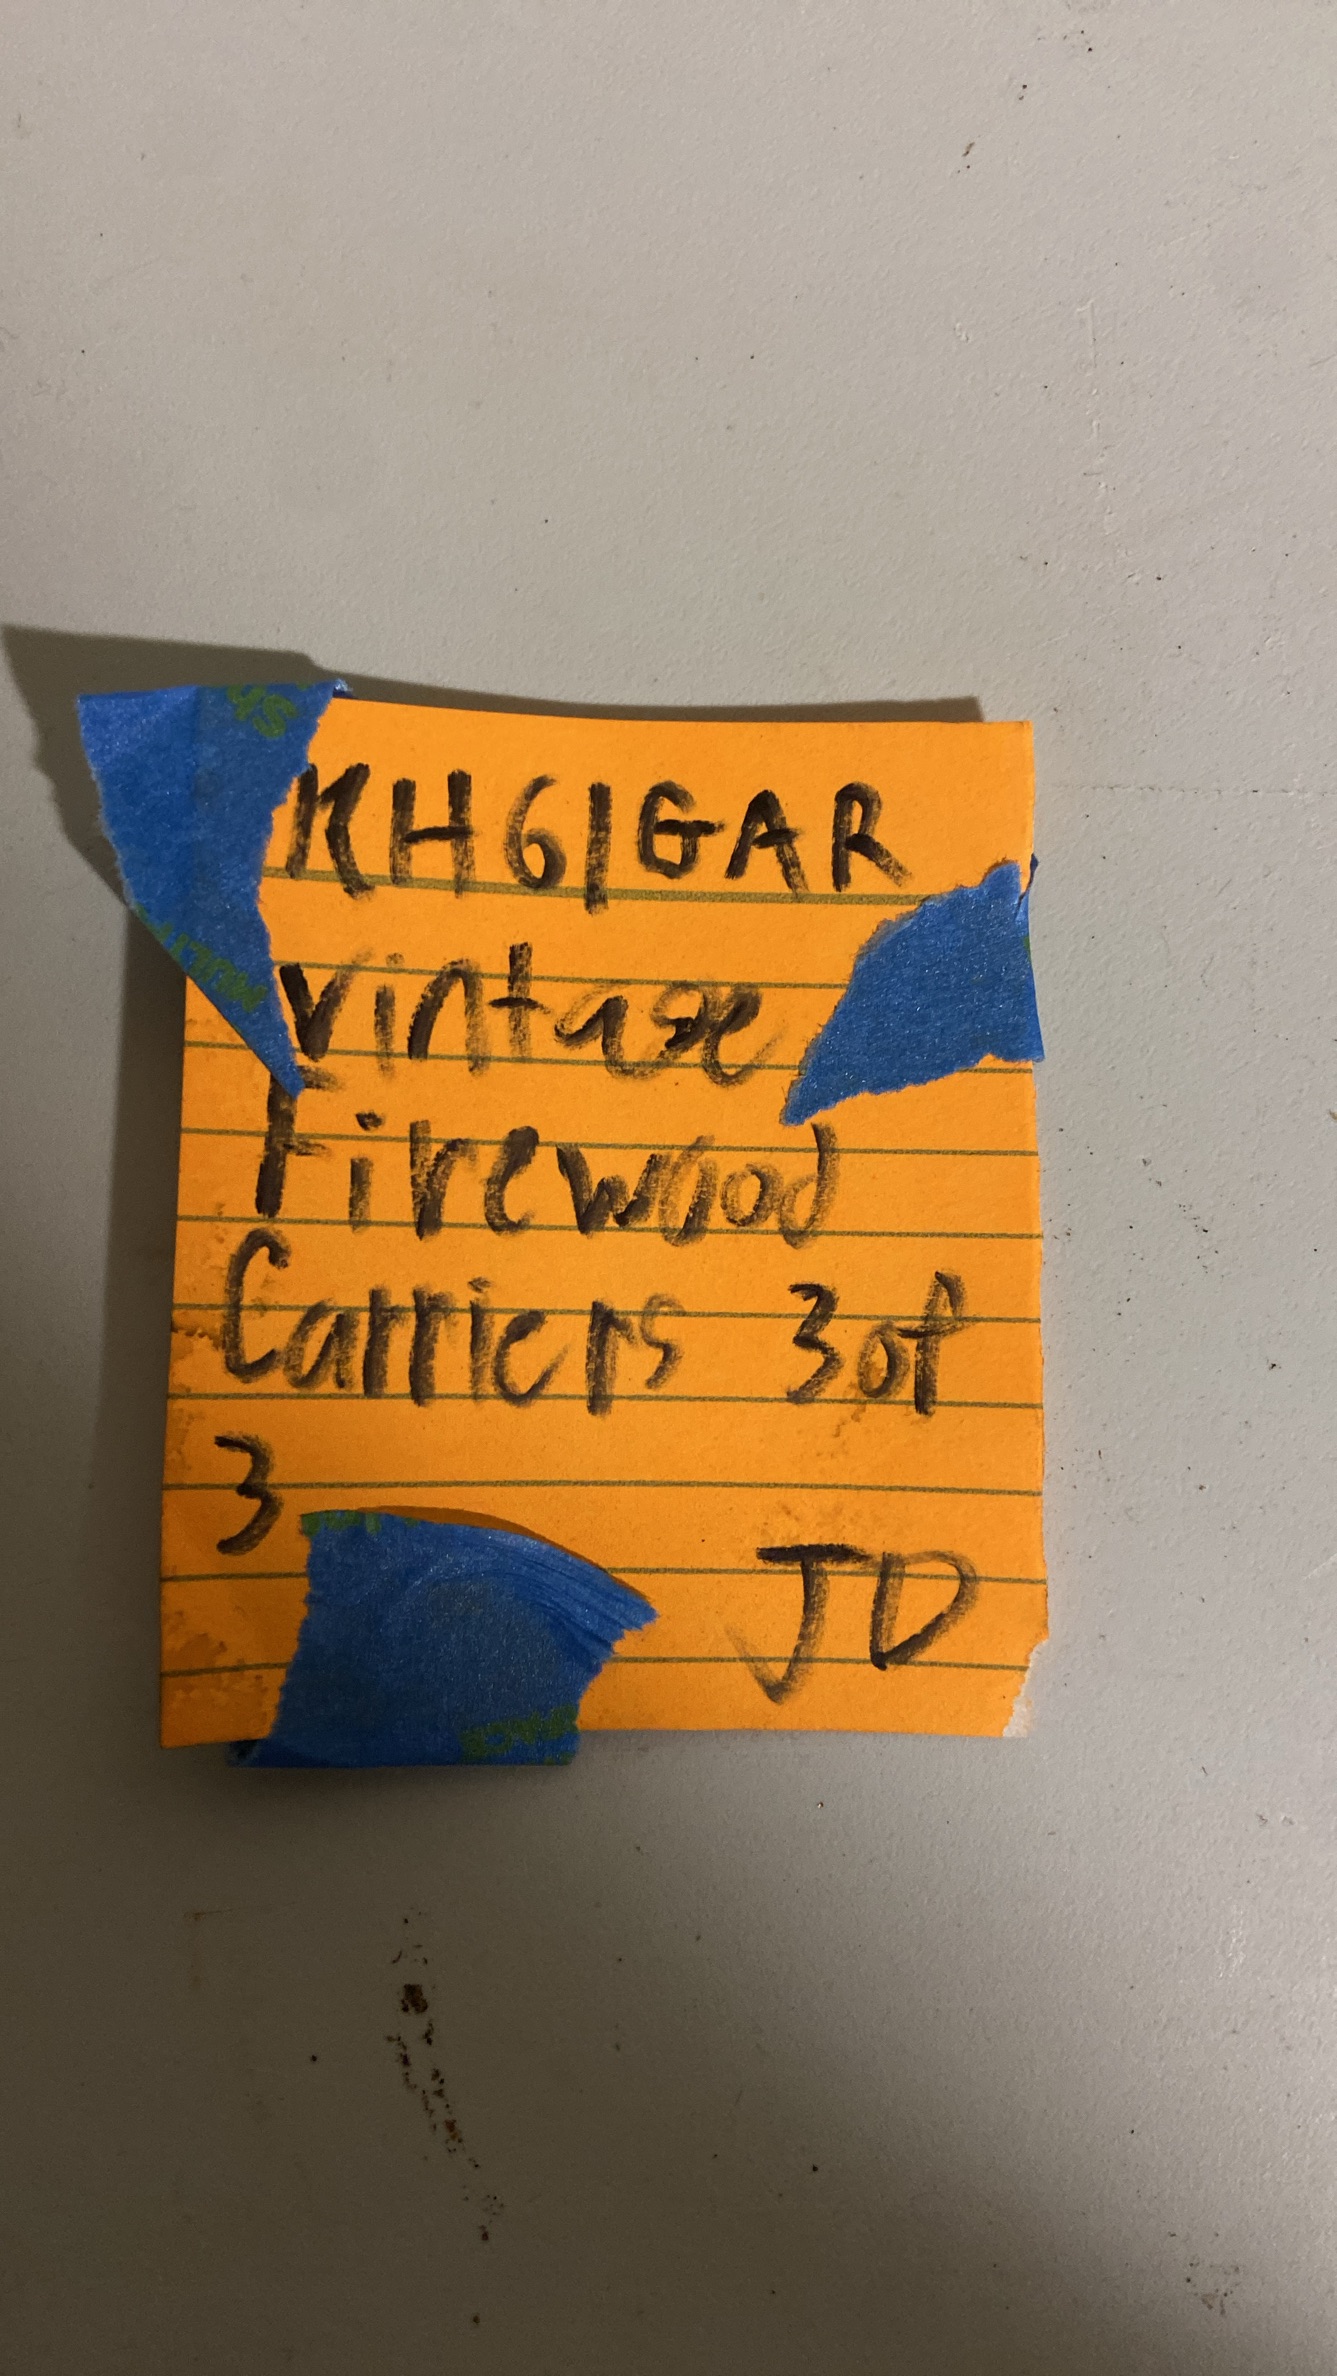 KH61GAR
Vintage
Firewood
Carriers 3 of
3
JD